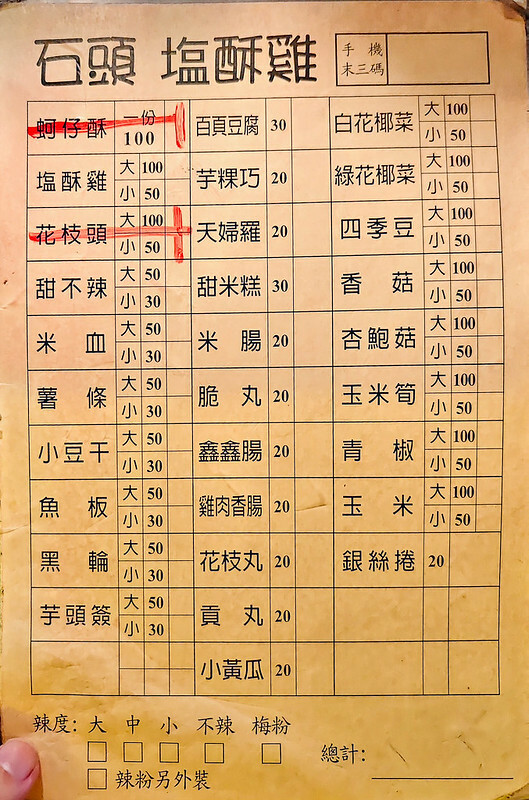 石頭 塩酥雞
手機
末三碼
蚵仔酥 一份 100
塩酥雞 大 100 小 50
花枝頭 大 100 小 50
甜不辣 大 50 小 30
米血 大 50 小 30
薯條 大 50 小 30
小豆干 大 50 小 30
魚板 大 50 小 30
黑輪 大 50 小 30
芋頭簽 大 50 小 30
百頁豆腐 30
芋粿巧 20
天婦羅 20
甜米糕 30
米腸 20
脆丸 20
鑫鑫腸 20
雞肉香腸 20
花枝丸 20
貢丸 20
小黃瓜 20
白花椰菜 大 100 小 50
綠花椰菜 大 100 小 50
四季豆 大 100 小 50
香菇 大 100 小 50
杏鮑菇 大 100 小 50
玉米筍 大 100 小 50
青椒 大 100 小 50
玉米 大 100 小 50
銀絲捲 20
辣度: 大 中 小 不辣 梅粉
辣粉另外裝
總計: